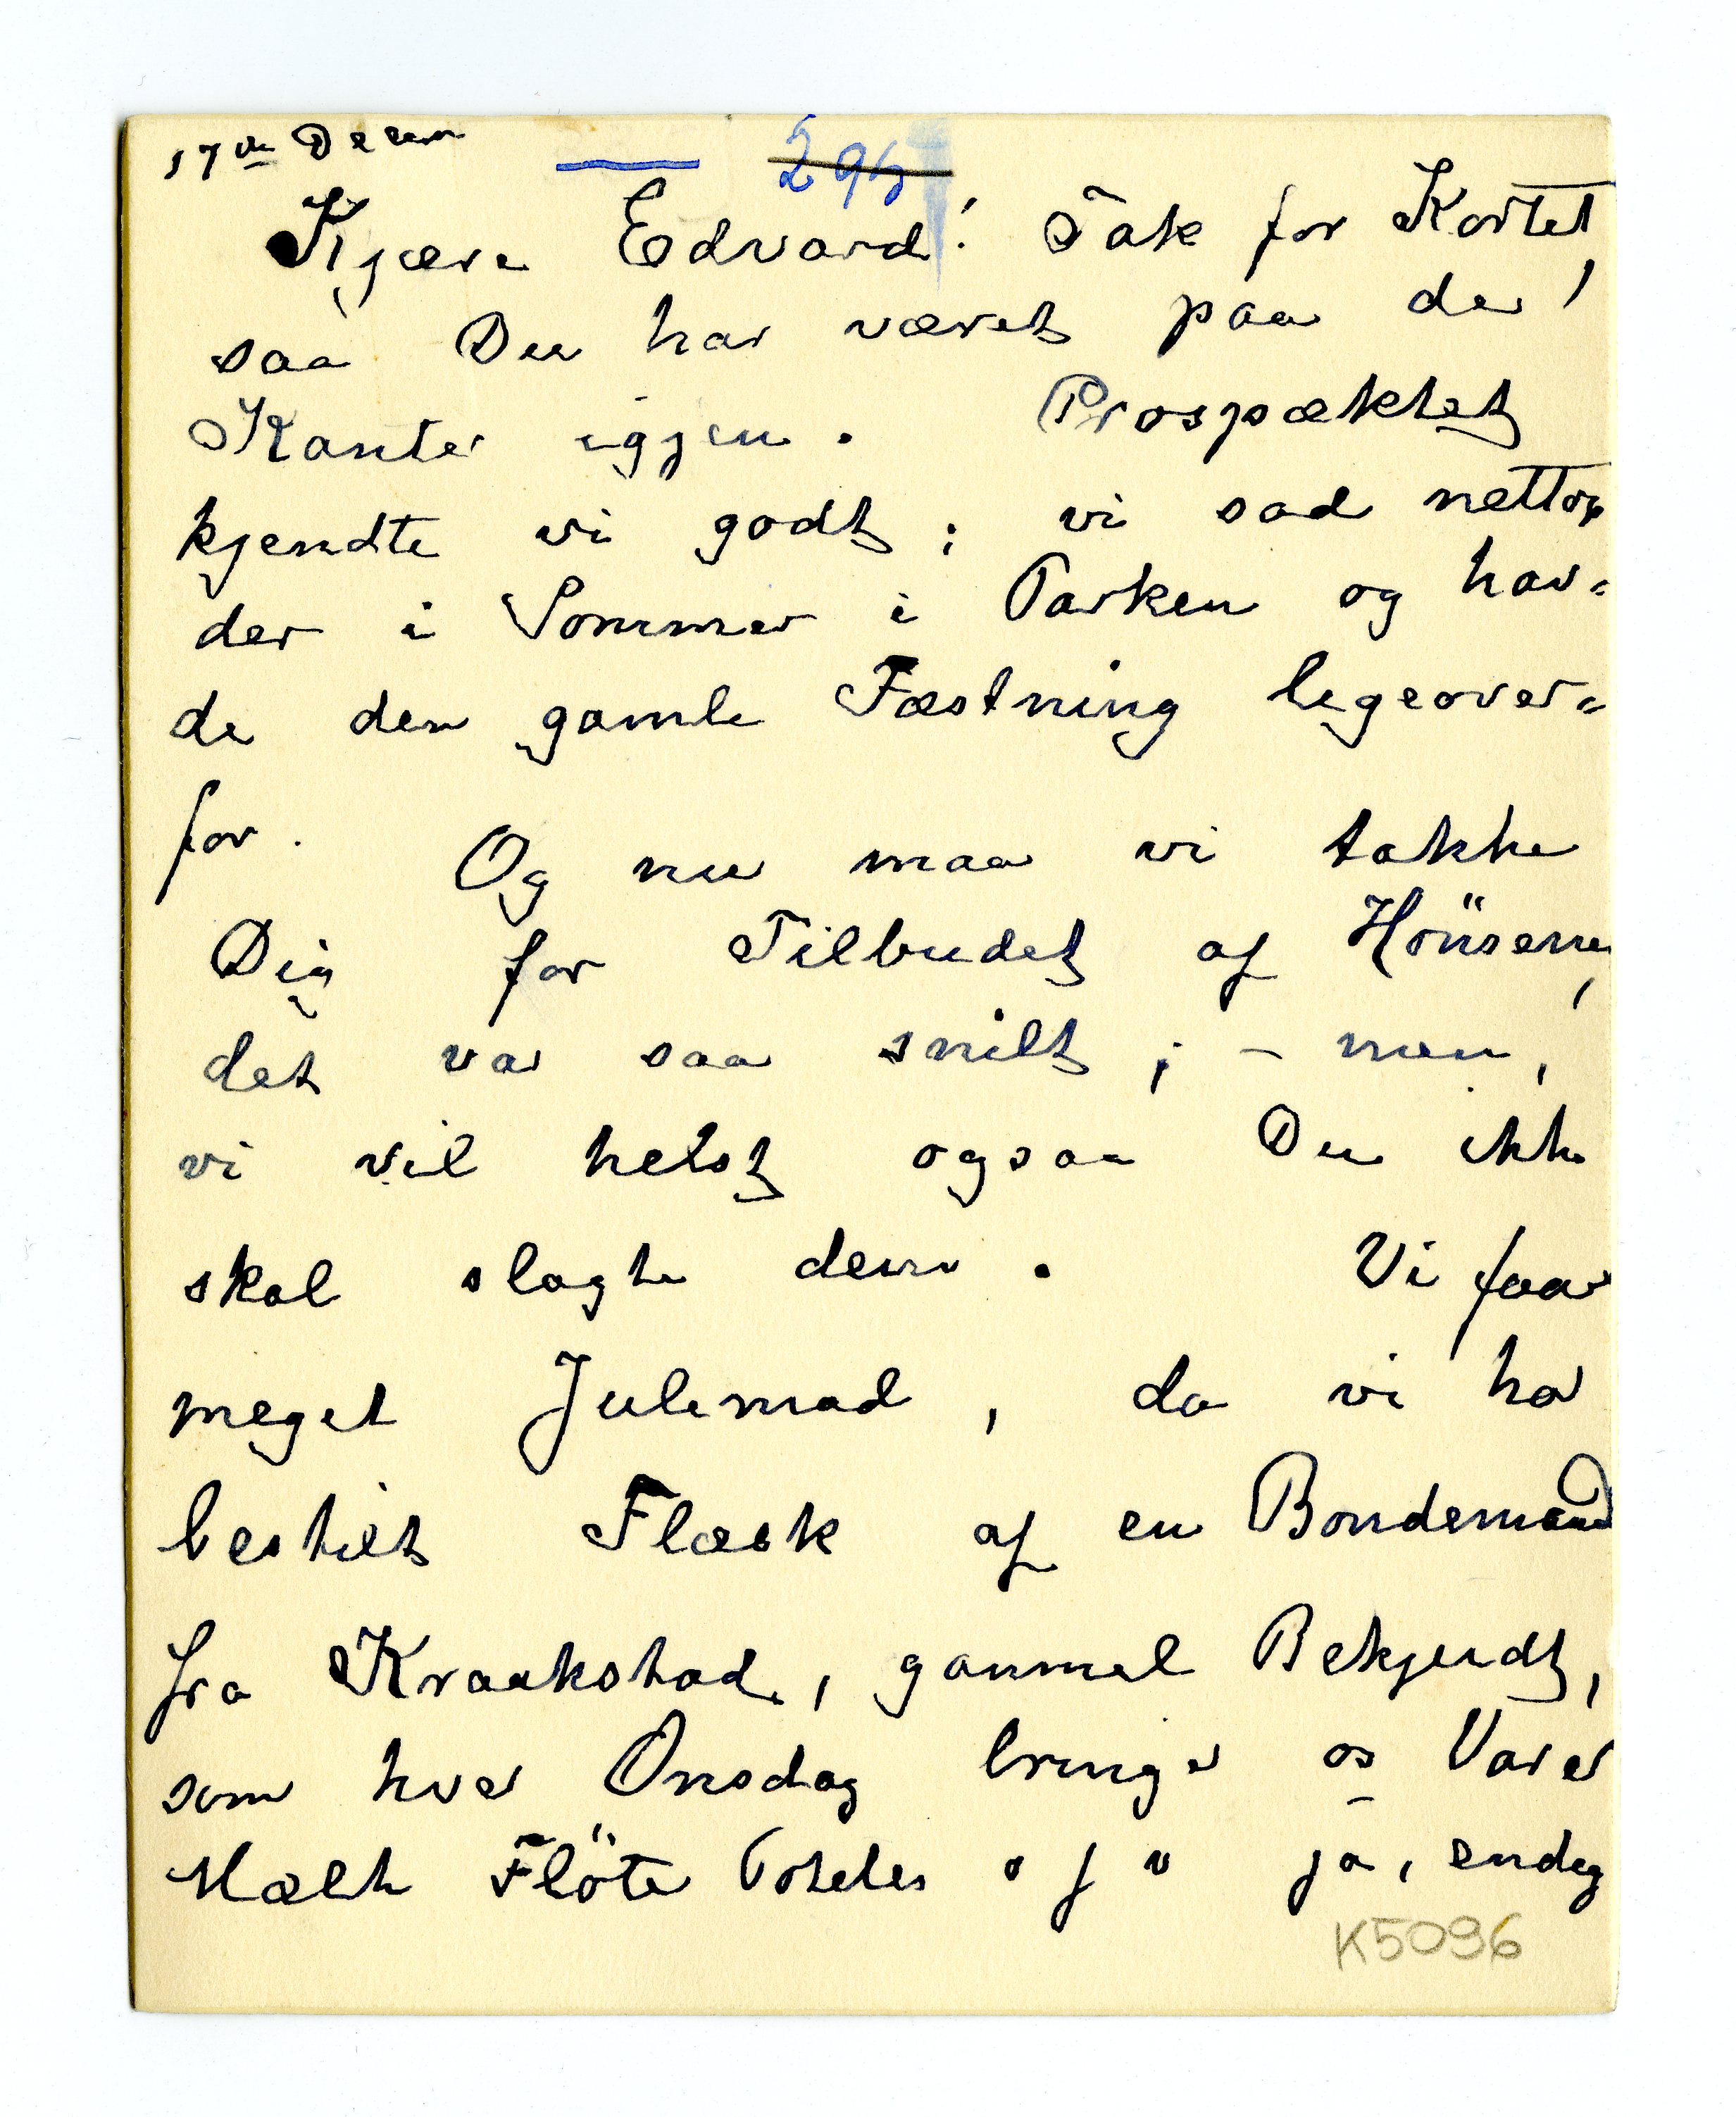 17de Decem
295
Kjære Edvard! Tak for Kortet,
saa Du har været paa de
Kanter igjen. Prospæktet
kjendte vi godt; vi sad nettop
der i Sommer i Parken og hav=
de den gamle Fæstning ligeover=
for. Og nu maa vi takke
Dig for Tilbudet af Hönsene,
det var saa snilt; – men,
vi vil helst ogsaa Du ikke
skal slagte dem. Vi faar
meget Julemad, da vi har
bestilt Flæsk af en Bondemand
fra Kraakstad, gammel Bekjendt,
som hver Onsdag bringer os Varer
Mælk Flöte Poteter o s v ja, endog
K5096